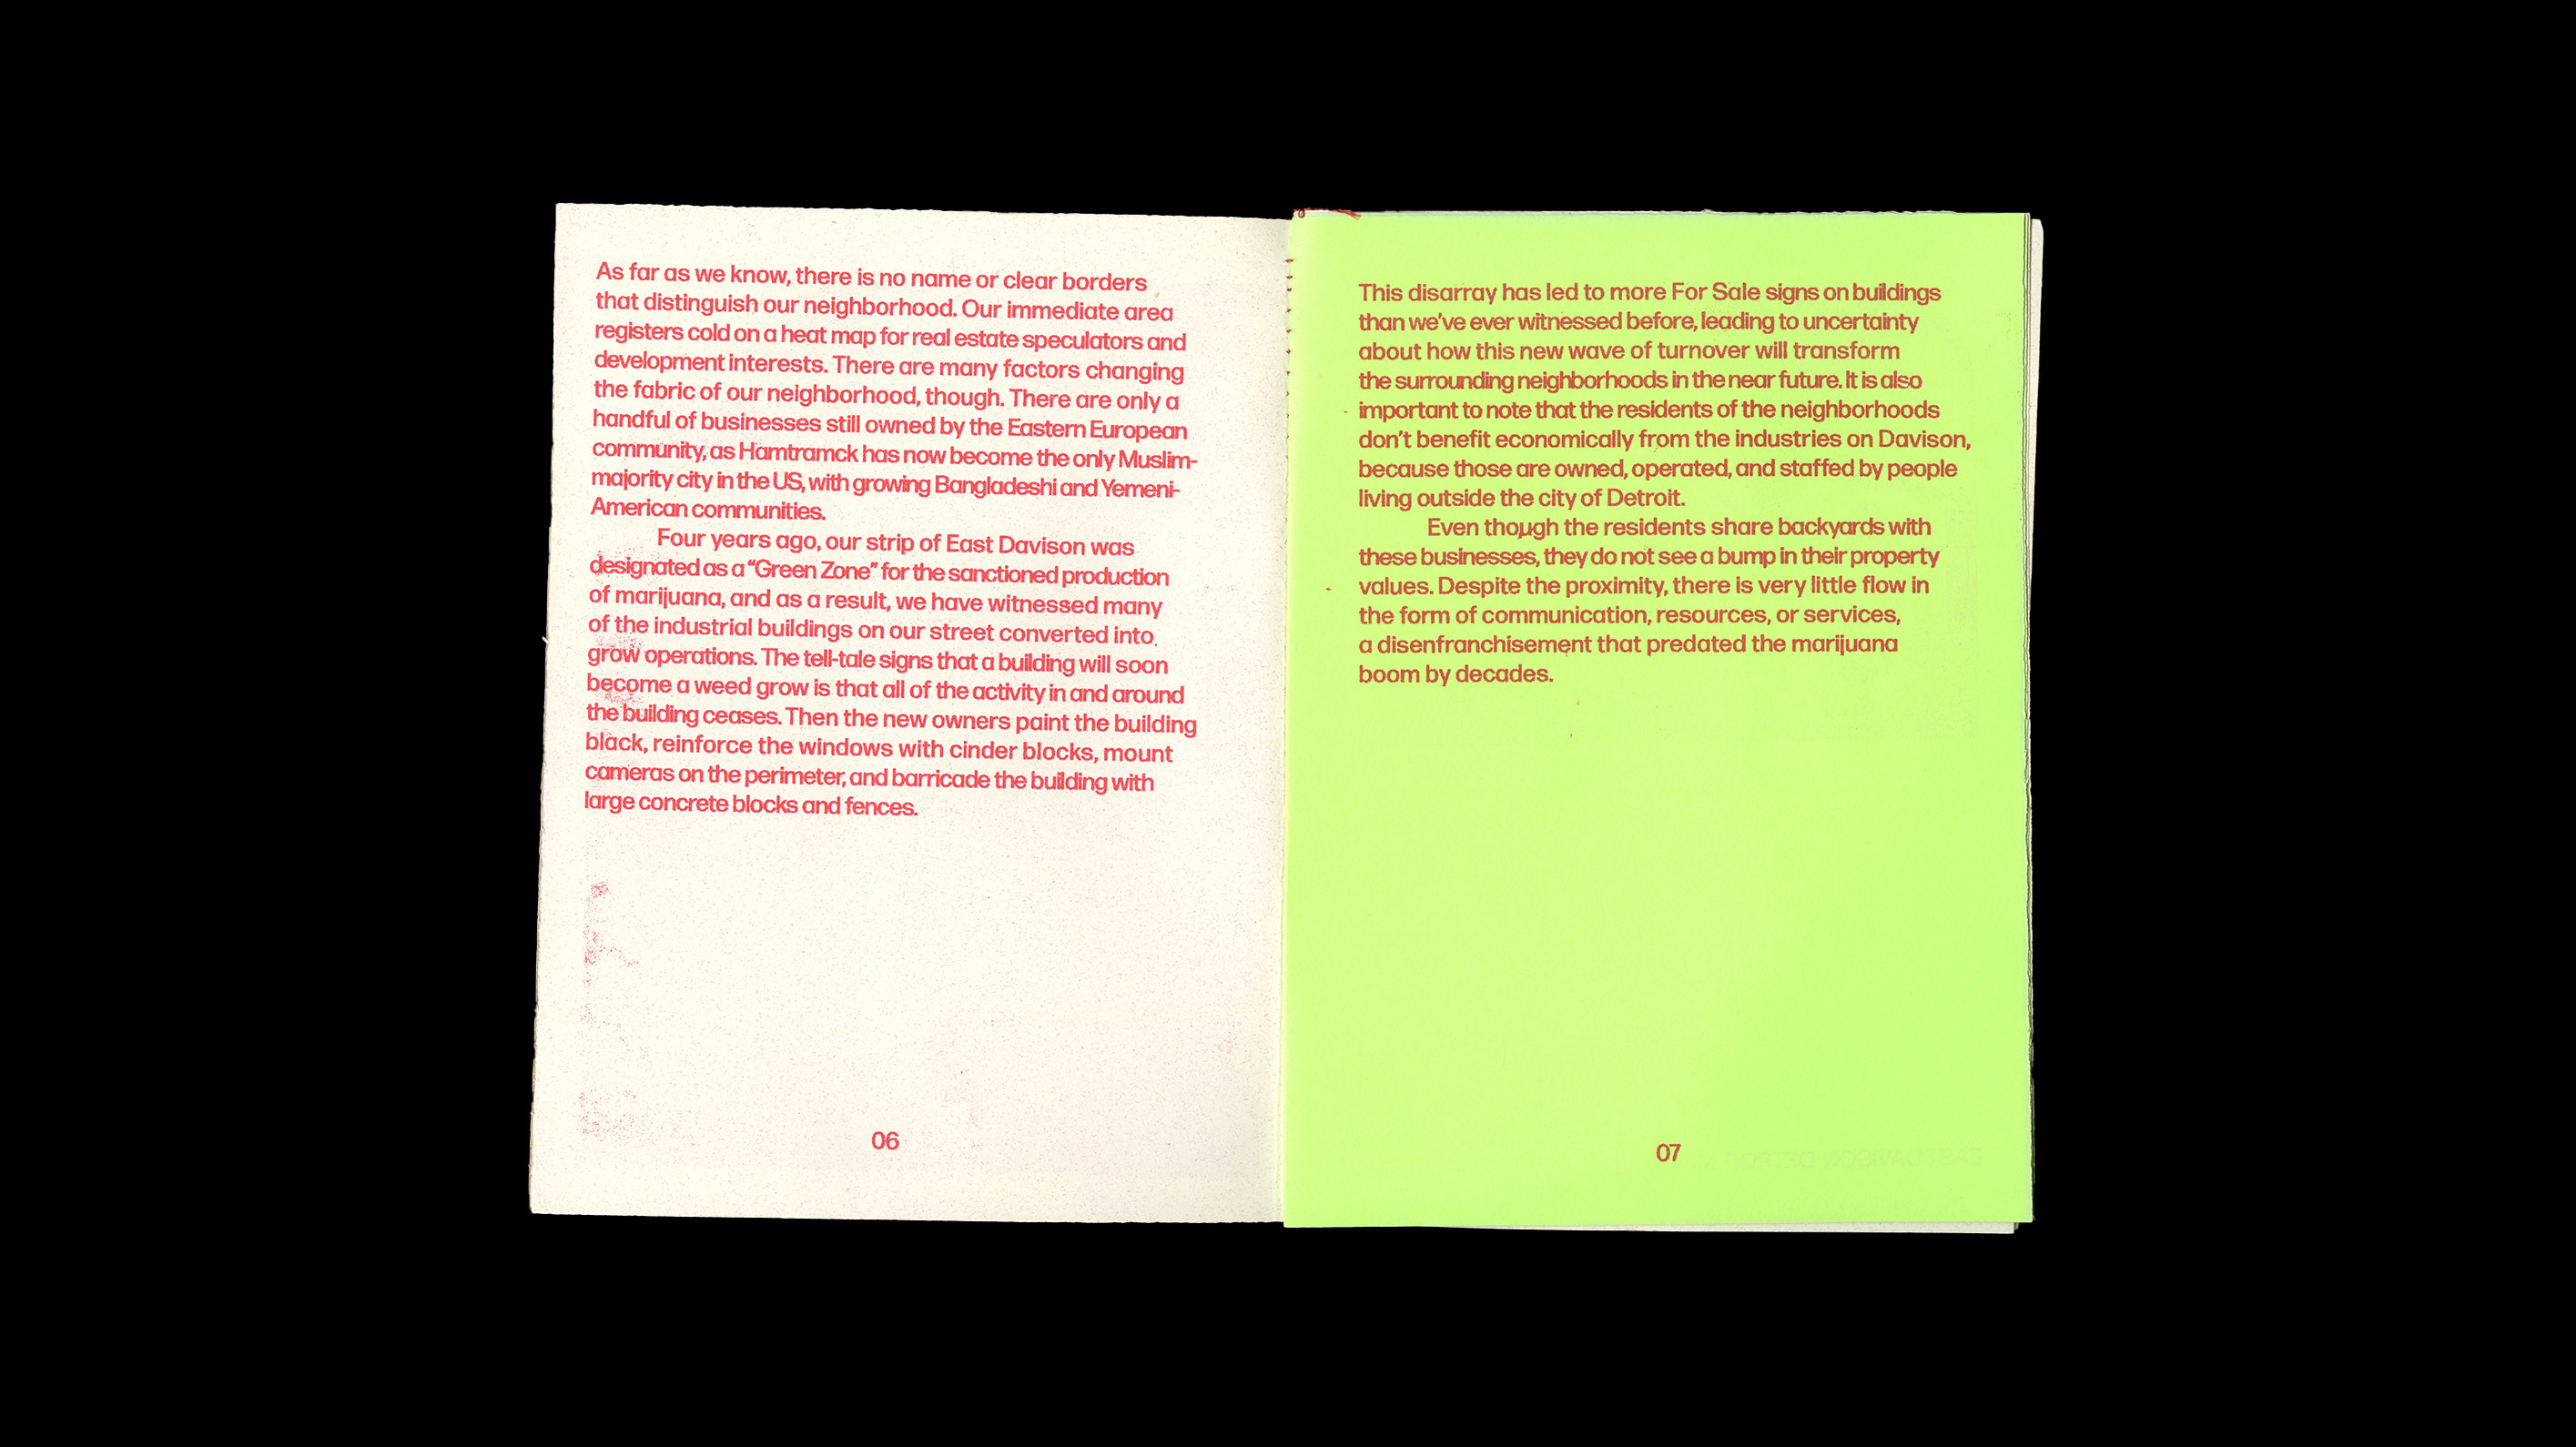 As far as we know, there is no name or clear borders
that distinguish our neighborhood. Our immediate area
registers cold on a heat map for real estate speculators and
development interests. There are many factors changing
the fabric of our neighborhood, though. There are only a
handful of businesses still owned by the Eastern European
community, as Hamtramck has now become the only Muslim-
majority city in the US, with growing Bangladeshi and Yemeni-
American communities.
Four years ago, our strip of East Davison was
designated as a “Green Zone” for the sanctioned production
of marijuana, and as a result, we have witnessed many
of the industrial buildings on our street converted into
grow operations. The tell-tale signs that a building will soon
become a weed grow is that all of the activity in and around
the building ceases. Then the new owners paint the building
black, reinforce the windows with cinder blocks, mount
cameras on the perimeter, and barricade the building with
large concrete blocks and fences.
06
This disarray has led to more For Sale signs on buildings
than we’ve ever witnessed before, leading to uncertainty
about how this new wave of turnover will transform
the surrounding neighborhoods in the near future. It is also
important to note that the residents of the neighborhoods
don’t benefit economically from the industries on Davison,
because those are owned, operated, and staffed by people
living outside the city of Detroit.
Even though the residents share backyards with
these businesses, they do not see a bump in their property
values. Despite the proximity, there is very little flow in
the form of communication, resources, or services,
a disenfranchisement that predated the marijuana
boom by decades.
07